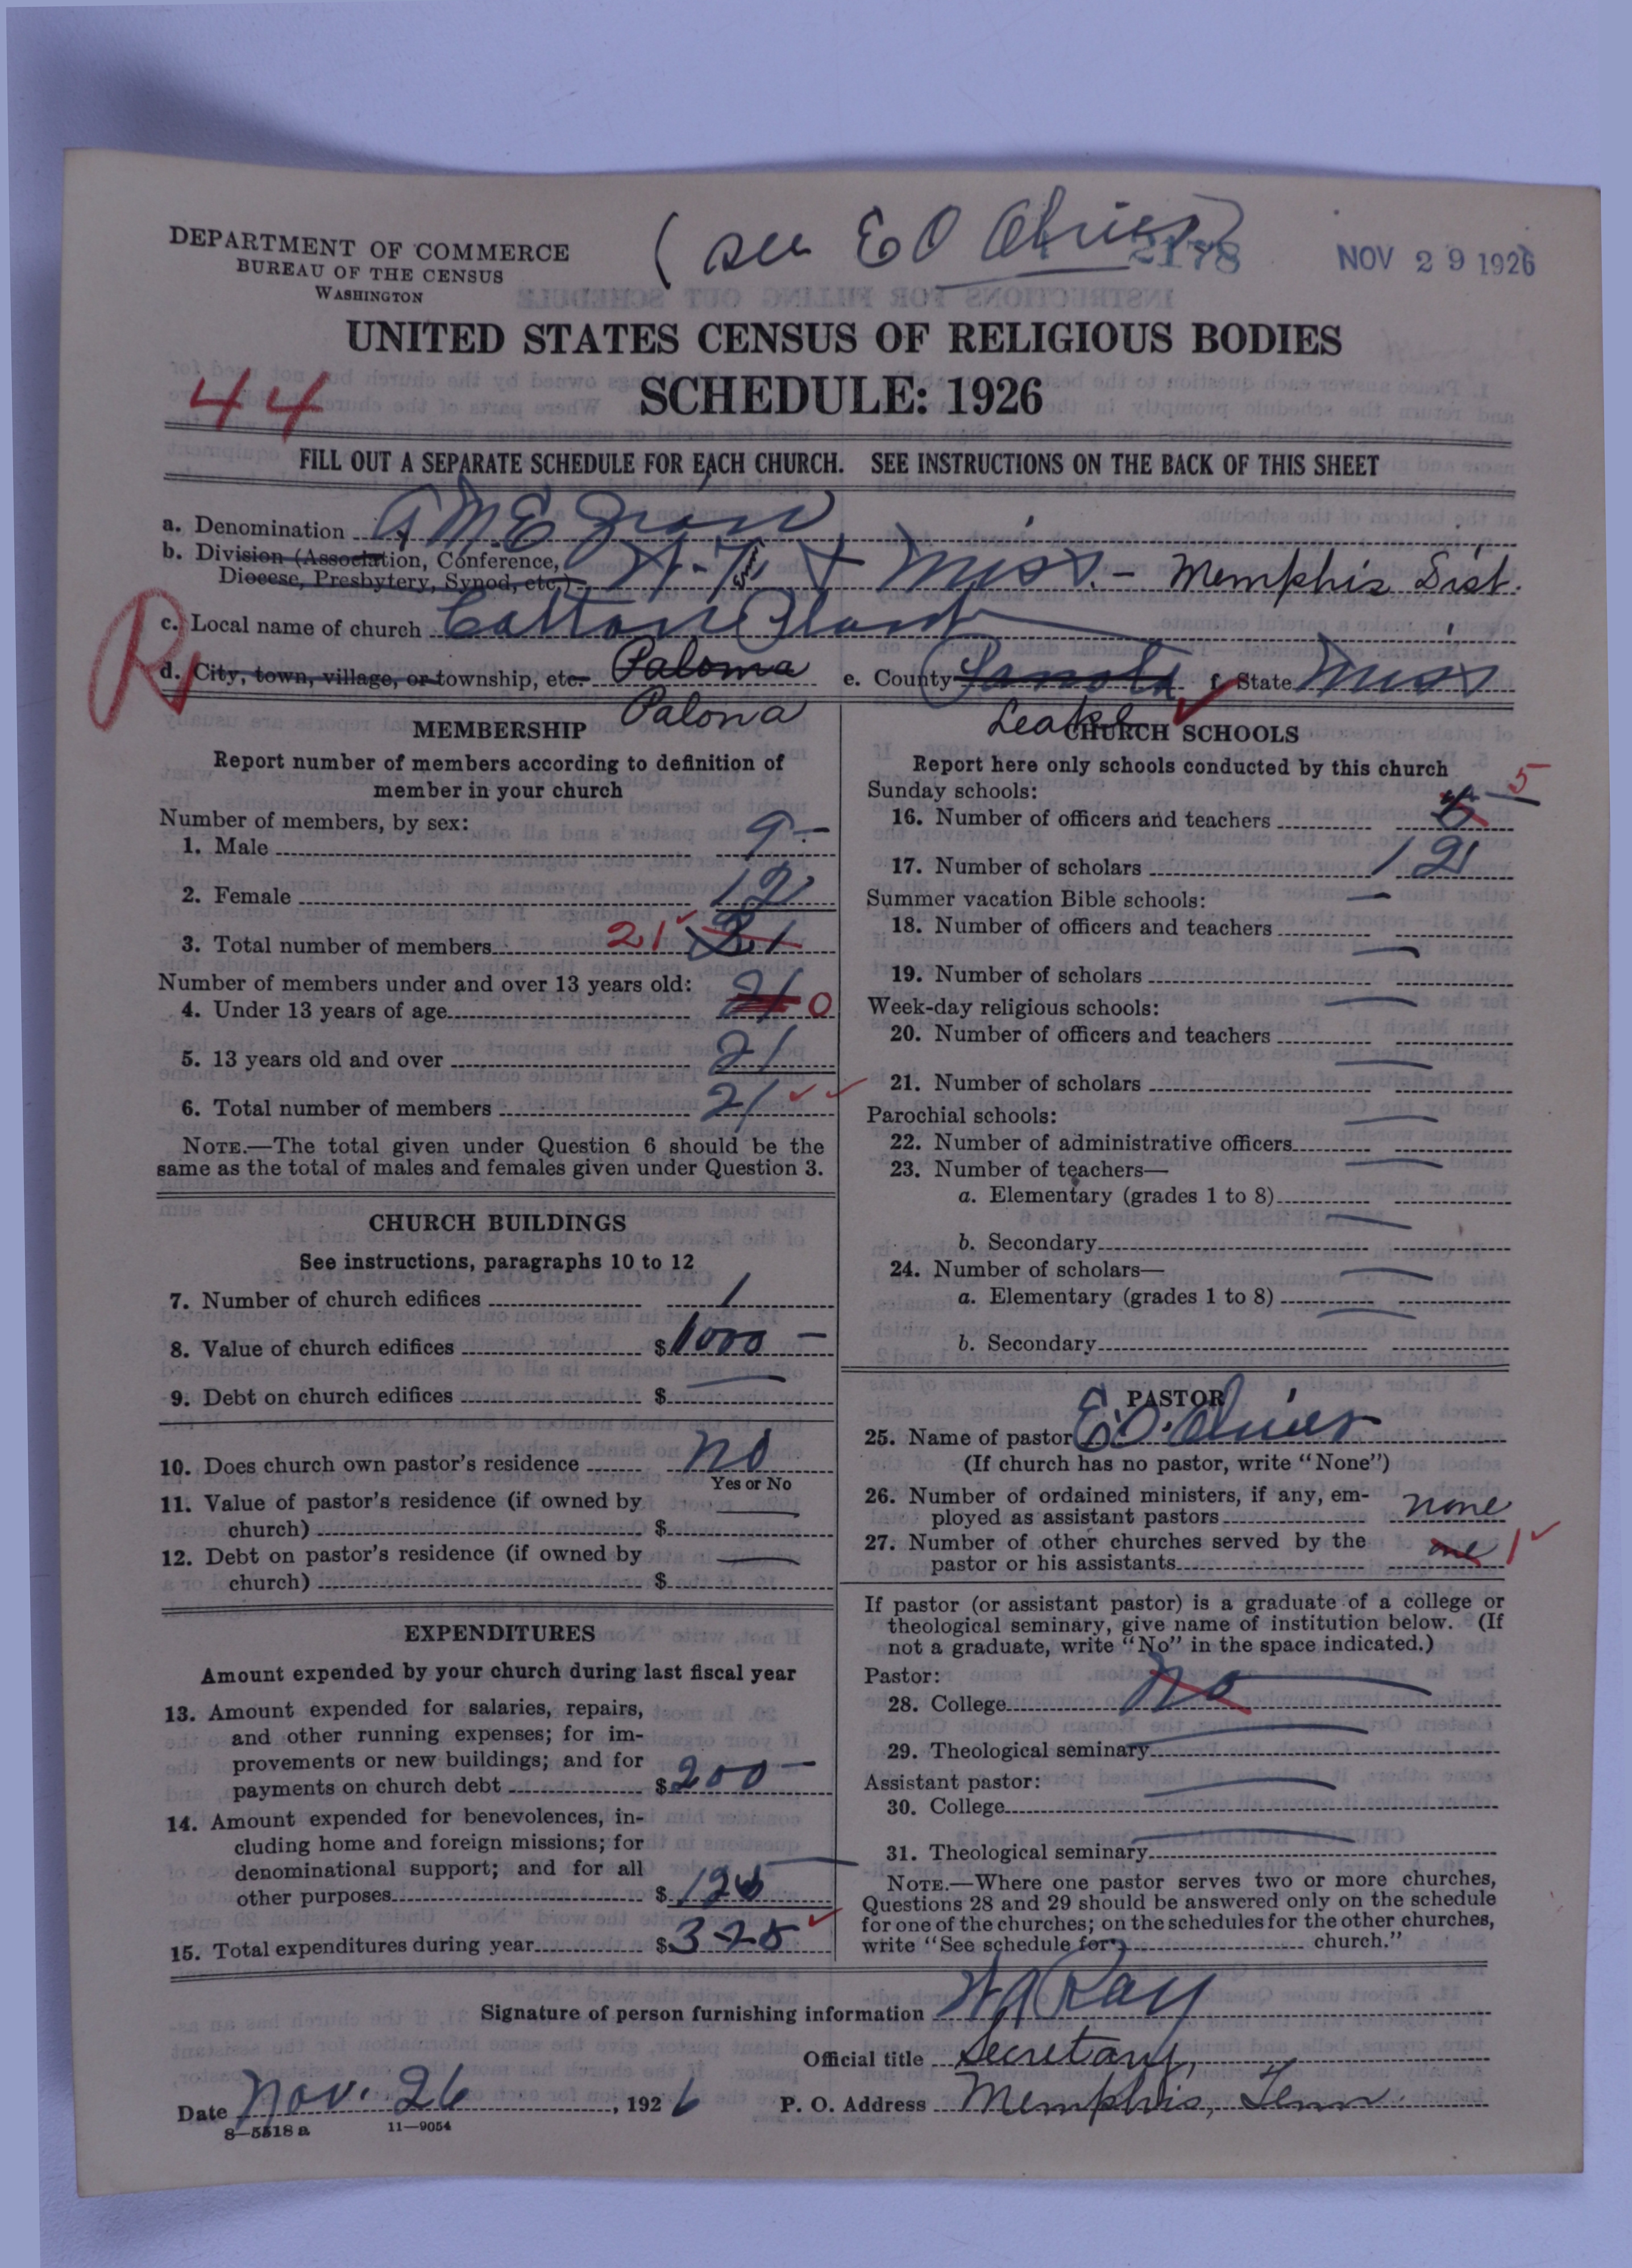 ( see E O Oliver)
2178
NOV 29 1926
DEPARTMENT OF COMMERCE
BUREAU OF THE CENSUS
WASHINGTON
UNITED STATES CENSUS OF RELIGIOUS BODIES
44
SCHEDULE: 1926
FILL OUT A SEPARATE SCHEDULE FOR EACH CHURCH. SEE INSTRUCTIONS ON THE BACK OF THIS SHEET
a. Denomination A M E Zion
b. Division (Association, Conference, Diocese, Presbytery, Synod, etc.) & Miss. - Memphis Dist.
c. Local name of church
d. City, town, village, or township, etc. Paloma e. County Panola f. State Miss
Palona Leake
MEMBERSHIP
Report number of members according to definition of
member in your church
Number of members, by sex:
1. Male 9 -
2. Female 12
3. Total number of members 21 21
Number of members under and over 13 years old:
4. Under 13 years of age 21 0
5. 13 years old and over 21
6. Total number of members 21
NOTE.—The total given under Question 6 should be the
same as the total of males and females given under Question 3.
CHURCH BUILDINGS
See instructions, paragraphs 10 to 12
7. Number of church edifices 1
8. Value of church edifices $ 1000 -
9. Debt on church edifices $ —
10. Does church own pastor's residence No
Yes or No
11. Value of pastor's residence (if owned by
church) $ —
12. Debt on pastor's residence (if owned by
church) $ —
EXPENDITURES
Amount expended by your church during last fiscal year
13. Amount expended for salaries, repairs,
and other running expenses; for im-
provements or new buildings; and for
payments on church debt $ 200 -
14. Amount expended for benevolences, in-
cluding home and foreign missions; for
denominational support; and for all
other purposes $ 125 -
15. Total expenditures during year $ 325
CHURCH SCHOOLS
Report here only schools conducted by this church
Sunday schools:
16. Number of officers and teachers 5
17. Number of scholars 12
Summer vacation Bible schools: —
18. Number of officers and teachers
19. Number of scholars —
Week-day religious schools: —
20. Number of officers and teachers
21. Number of scholars —
Parochial schools: —
22. Number of administrative officers
23. Number of teachers— —
a. Elementary (grades 1 to 8)
b. Secondary —
24. Number of scholars— —
a. Elementary (grades 1 to 8)
b. Secondary —
PASTOR
25. Name of pastor E. O. Oliver
(If church has no pastor, write "None")
26. Number of ordained ministers, if any, em-
ployed as assistant pastors none
27. Number of other churches served by the
pastor or his assistants one 1
If pastor (or assistant pastor) is a graduate of a college or
theological seminary, give name of institution below. (If
not a graduate, write "No" in the space indicated.)
Pastor:
28. College No —
29. Theological seminary —
Assistant pastor:
30. College —
31. Theological seminary —
NOTE.—Where one pastor serves two or more churches,
Questions 28 and 29 should be answered only on the schedule
for one of the churches; on the schedules for the other churches,
write "See schedule for church."
Signature of person furnishing information Ray
Official title Secretary,
Date Nov. 26, 1926 P. O. Address Memphis, Tenn.
8—5518a 11—9054